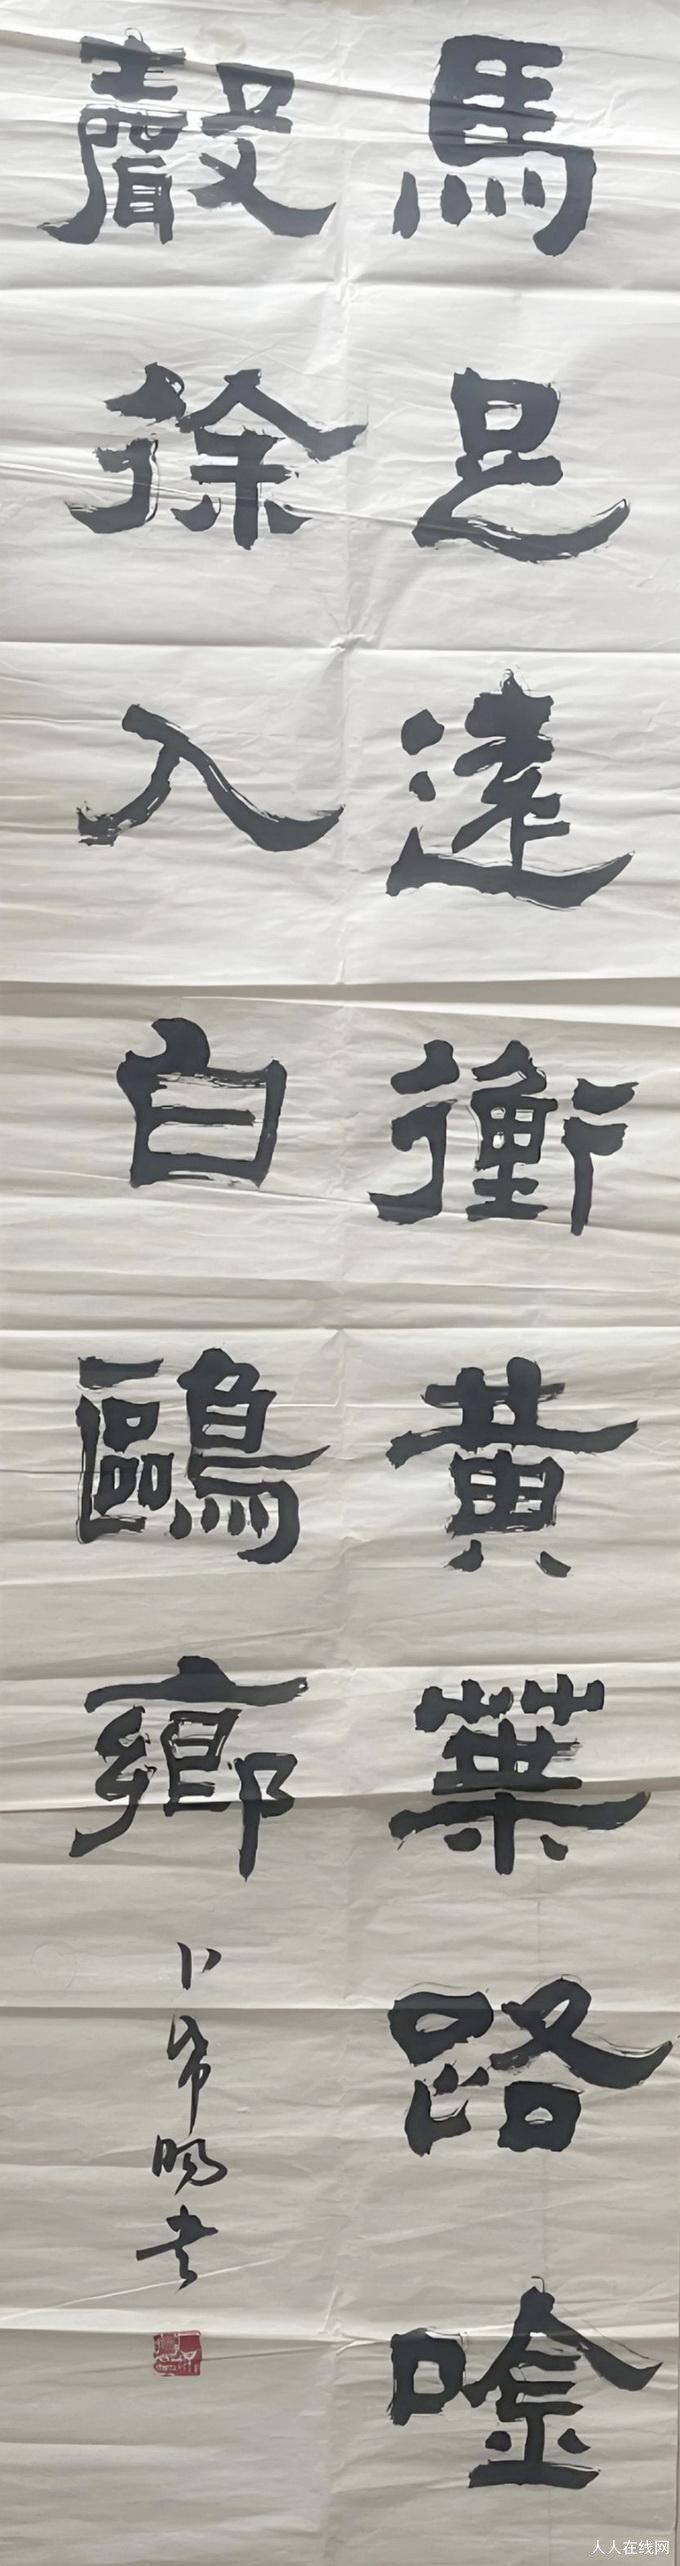 馬足遠衝黃葉路唫
聲徐入白鷗鄉
卜希旸书
人人在线网